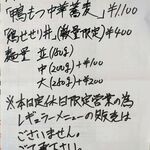 「鴨もつ中華蕎麦」¥1,100
「鴨せせり丼」(数量限定)¥400
麺量 並(150g)
中(200g)+¥100
大(250g)+¥200
※本日定休日限定営業の為
レギュラーメニューの販売は
ございません。
ご了承下さい。